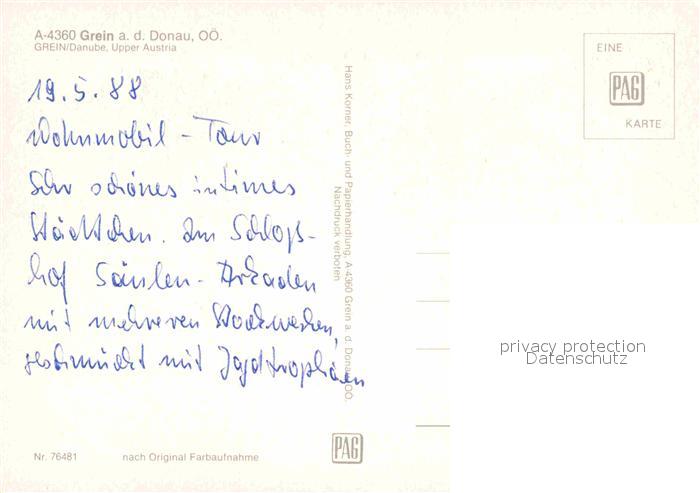 A-4360 Grein a. d. Donau, OÖ.
GREIN/Danube, Upper Austria
19.5.88
Wohnmobil - Tour
Sehr schönes intimes
Städtchen. Im Schloß-
hof Säulen - Arkaden
mit mehreren Stockwerken,
geschmückt mit Jagdtrophäen
Nr. 76481
nach Original Farbaufnahme
Hans Korner, Buch- und Papierhandlung, A-4360 Grein a. d. Donau, OÖ.
Nachdruck verboten
PAG
EINE
PAG
KARTE
privacy protection
Datenschutz